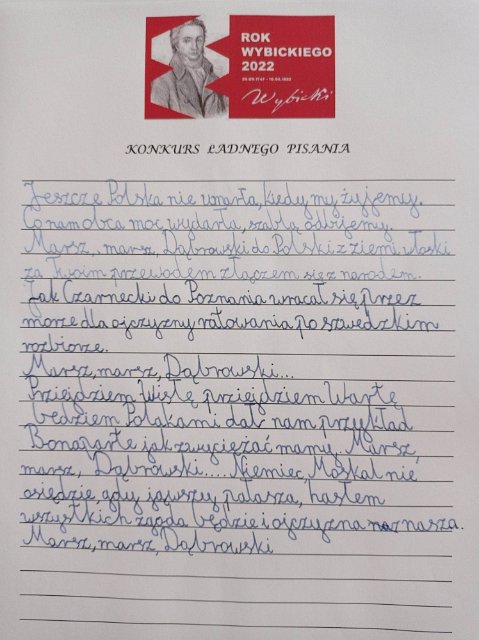 ROK
WYBICKIEGO
2022
Wybicki
KONKURS ŁADNEGO PISANIA
Jeszcze Polska nie umarła, kiedy my żyjemy.
Co nam obca moc wydarła, szablą odbijemy.
Marsz, marsz, Dąbrowski do Polski z ziemi włoski
za Twoim przewodem złączem się z narodem.
Jak Czarnecki do Poznania wracał się przez
morze dla ojczyzny ratowania po szwedzkim
rozbiorze.
Marsz, marsz, Dąbrowski...
Przejdziem Wisłę przejdziem Wartę
będziem Polakami dał nam przykład
Bonaparte jak zwyciężać mamy. Marsz,
marsz, Dąbrowski.... Niemiec, Moskal nie
osiędzie gdy jąwszy pałasza, hasłem
wszystkich zgoda będzie i ojczyzna nasza.
Marsz, marsz, Dąbrowski